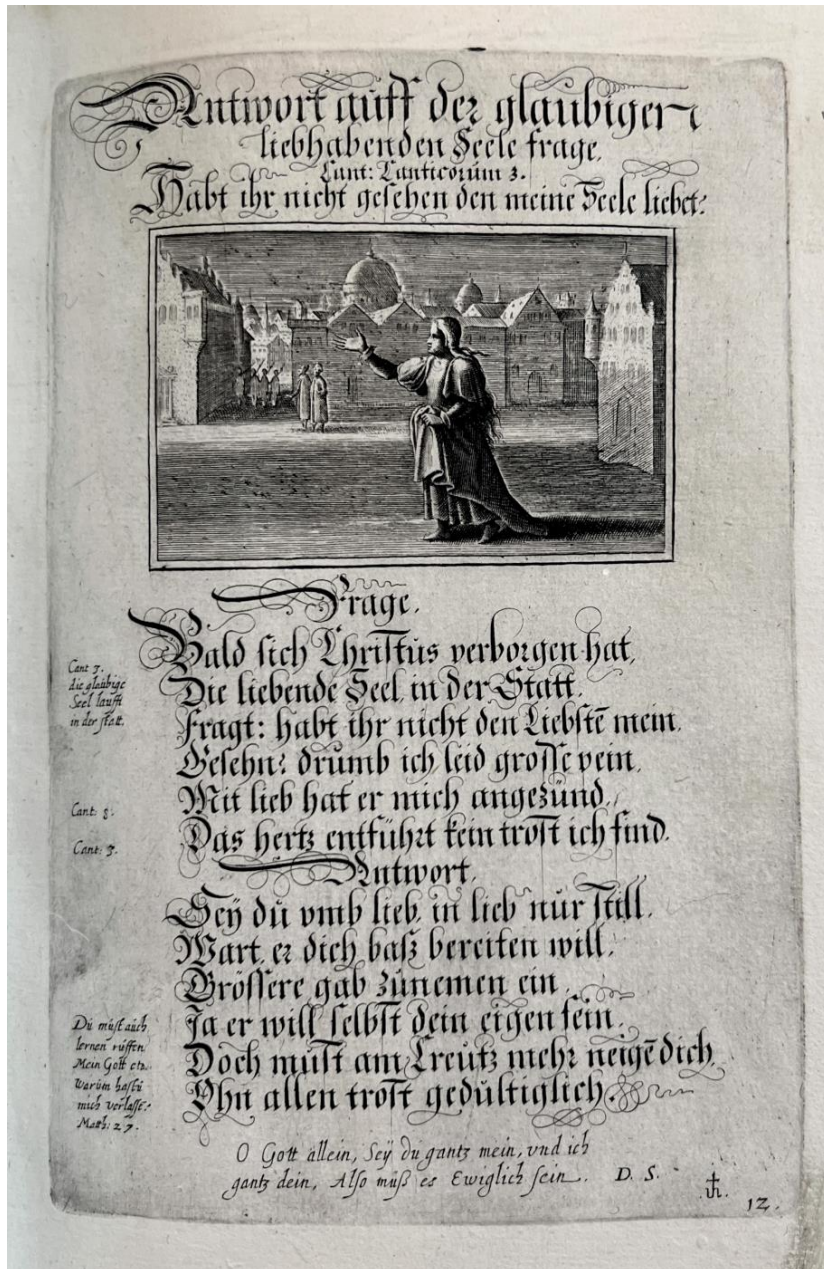 Antwort auff der glaubigen
liebhabenden Seele frage.
Cant: Canticorum 3.
Habt ihr nicht gesehen den meine Seele liebet?
Frage.
Bald sich Christus verborgen hat,
Die liebende Seel, in der Statt.
Fragt: habt ihr nicht den Liebstē mein.
Gesehn? drumb ich leid grosse pein,
Mit lieb hat er mich angezünd,
Das hertz entführt kein trost ich find.
Antwort.
Sey du vmb lieb, in lieb nur still,
Wart, er dich basz bereiten will,
Grössere gab zunemen ein,
Ja er will selbst dein eigen sein,
Doch must am Creutz mehr neigē dich,
Ohn allen trost gedultiglich.
Cant 3.
die glaubige
Seel laufft
in der statt.
Cant. 8.
Cant. 3.
Du must auch
lernen ruffen
Mein Gott etc.
warum hastu
mich verlasse.
Matth: 27.
O Gott allein, Sey du gantz mein, vnd ich
gantz dein, Also muß es Ewiglich sein. D. S.
12.